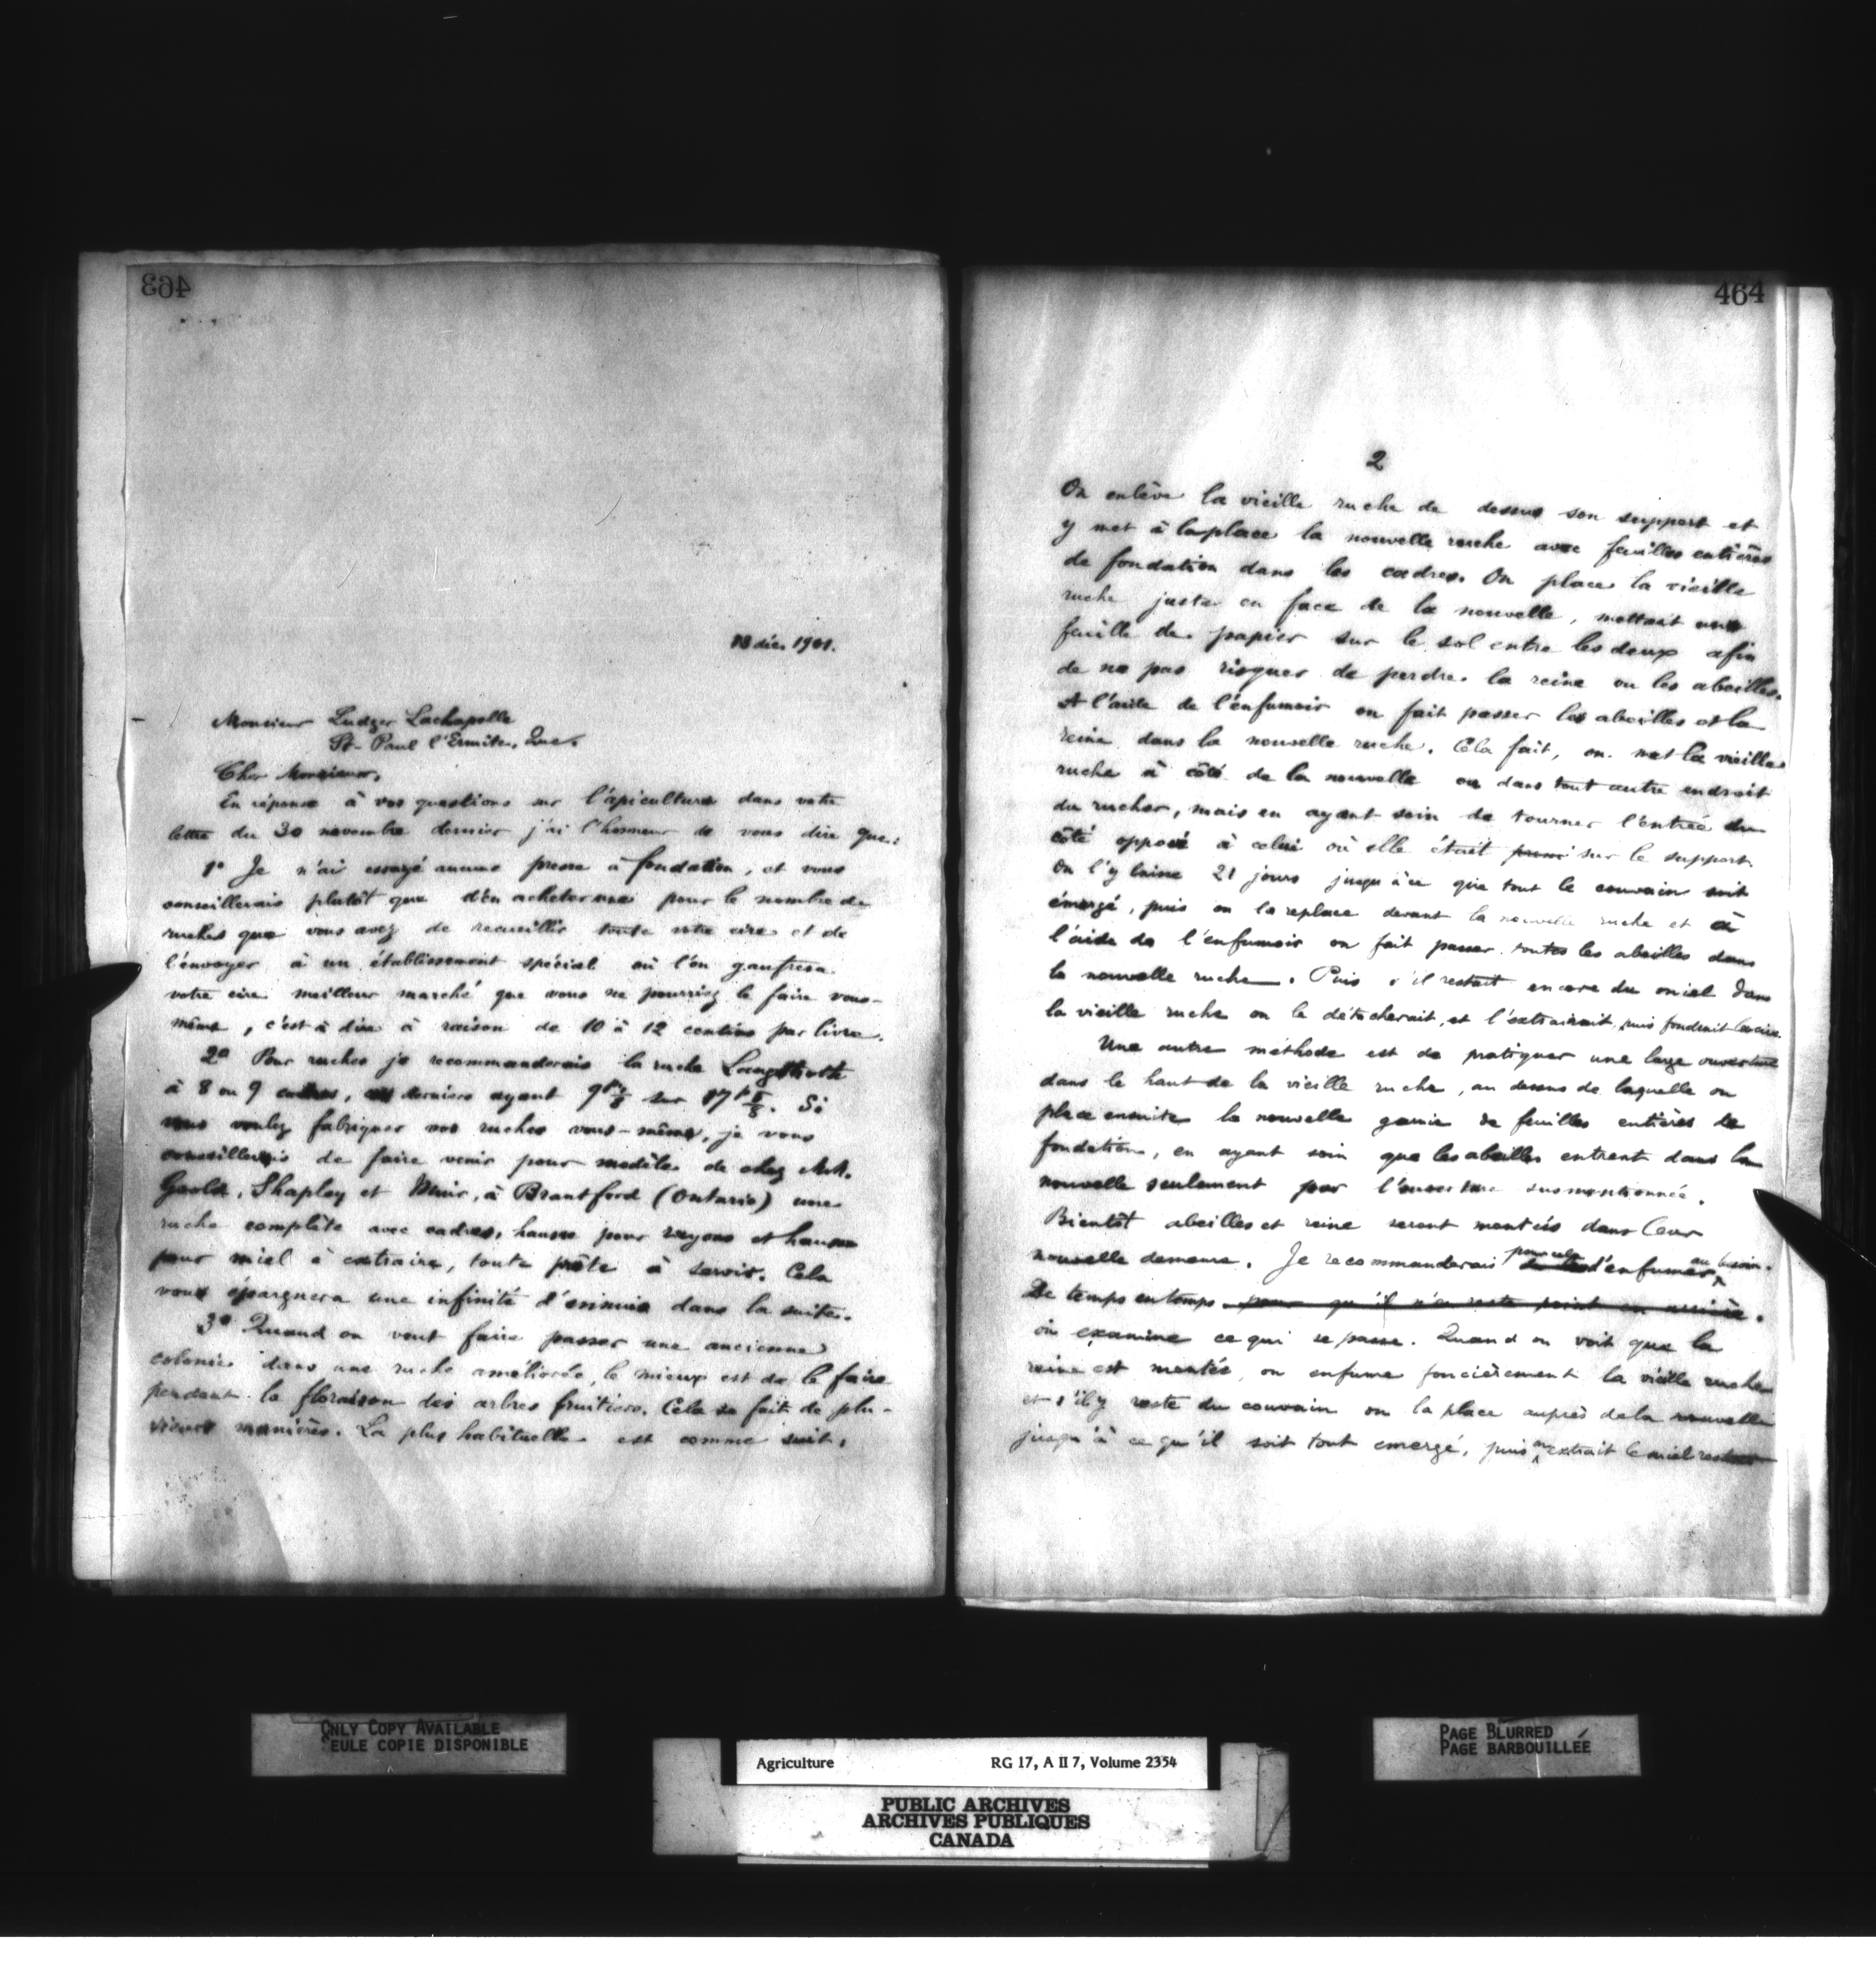 463
18 déc. 1901.
Monsieur Ludger Lachapelle
St-Paul l'Ermite, Que.
Cher Monsieur,
En réponse à vos questions sur l'apiculture dans votre
lettre du 30 novembre dernier j'ai l'honneur de vous dire que:
1º Je n'ai essayé aucune presse à fondation, et vous
conseillerais plutôt que d'en acheter une pour le nombre de
ruches que vous avez de recueillir toute votre cire et de
l'envoyer à un établissement spécial où l'on gaufrera
votre cire meilleur marché que vous ne pourriez le faire vous-
même, c'est à dire à raison de 10 à 12 centins par livre.
2º Pour ruches je recommanderais la ruche Langstroth
à 8 ou 9 cadres, ces derniers ayant 9 1/8 sur 17 5/8. Si
vous voulez fabriquer vos ruches vous-même, je vous
conseillerais de faire venir pour modèle de chez MM.
Goold, Shapley et Muir, à Brantford (Ontario) une
ruche complète avec cadres, hausse pour rayons et hausse
pour miel à extraire, toute prête à servir. Cela
vous épargnera une infinité d'ennuis dans la suite.
3º Quand on veut faire passer une ancienne
colonie dans une ruche améliorée, le mieux est de le faire
pendant la floraison des arbres fruitiers. Cela se fait de plu-
sieurs manières. La plus habituelle est comme suit,
464
2
On enlève la vieille ruche de dessus son support et
y met à la place la nouvelle ruche avec feuilles entières
de fondation dans les cadres. On place la vieille
ruche juste en face de la nouvelle, mettant une
feuille de papier sur le sol entre les deux afin
de ne pas risquer de perdre la reine ou les abeilles.
A l'aide de l'enfumoir on fait passer les abeilles et la
reine dans la nouvelle ruche. Cela fait, on met la vieille
ruche à côté de la nouvelle ou dans tout autre endroit
du rucher, mais en ayant soin de tourner l'entrée du
côté opposé à celui où elle était sur le support.
On l'y laisse 21 jours jusqu'à ce que tout le couvain soit
émergé, puis on la replace devant la nouvelle ruche et à
l'aide de l'enfumoir on fait passer toutes les abeilles dans
la nouvelle ruche. Puis s'il restait encore du miel dans
la vieille ruche on le détacherait, et l'extrairait, puis fondrait la cire.
Une autre méthode est de pratiquer une large ouverture
dans le haut de la vieille ruche, au dessus de laquelle on
place ensuite la nouvelle garnie de feuilles entières de
fondation, en ayant soin que les abeilles entrent dans la
nouvelle seulement par l'ouverture susmentionnée.
Bientôt abeilles et reine seront montées dans leur
nouvelle demeure. Je recommanderais pour cela d'enfumer au besoin.
De temps en temps pour qu'il n'en reste point en arrière.
on examine ce qui se passe. Quand on voit que la
reine est montée, on enfume foncièrement la vieille ruche
et s'il y reste du couvain on la place auprès de la nouvelle
jusqu'à ce qu'il soit tout emergé, puis on extrait le miel restant
ONLY COPY AVAILABLE
EULE COPIE DISPONIBLE
PAGE BLURRED
PAGE BARBOUILLÉE
Agriculture RG 17, A II 7, Volume 2354
PUBLIC ARCHIVES
ARCHIVES PUBLIQUES
CANADA